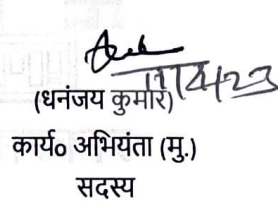 (धनंजय कुमार)
कार्य० अभियंता (मु.)
सदस्य